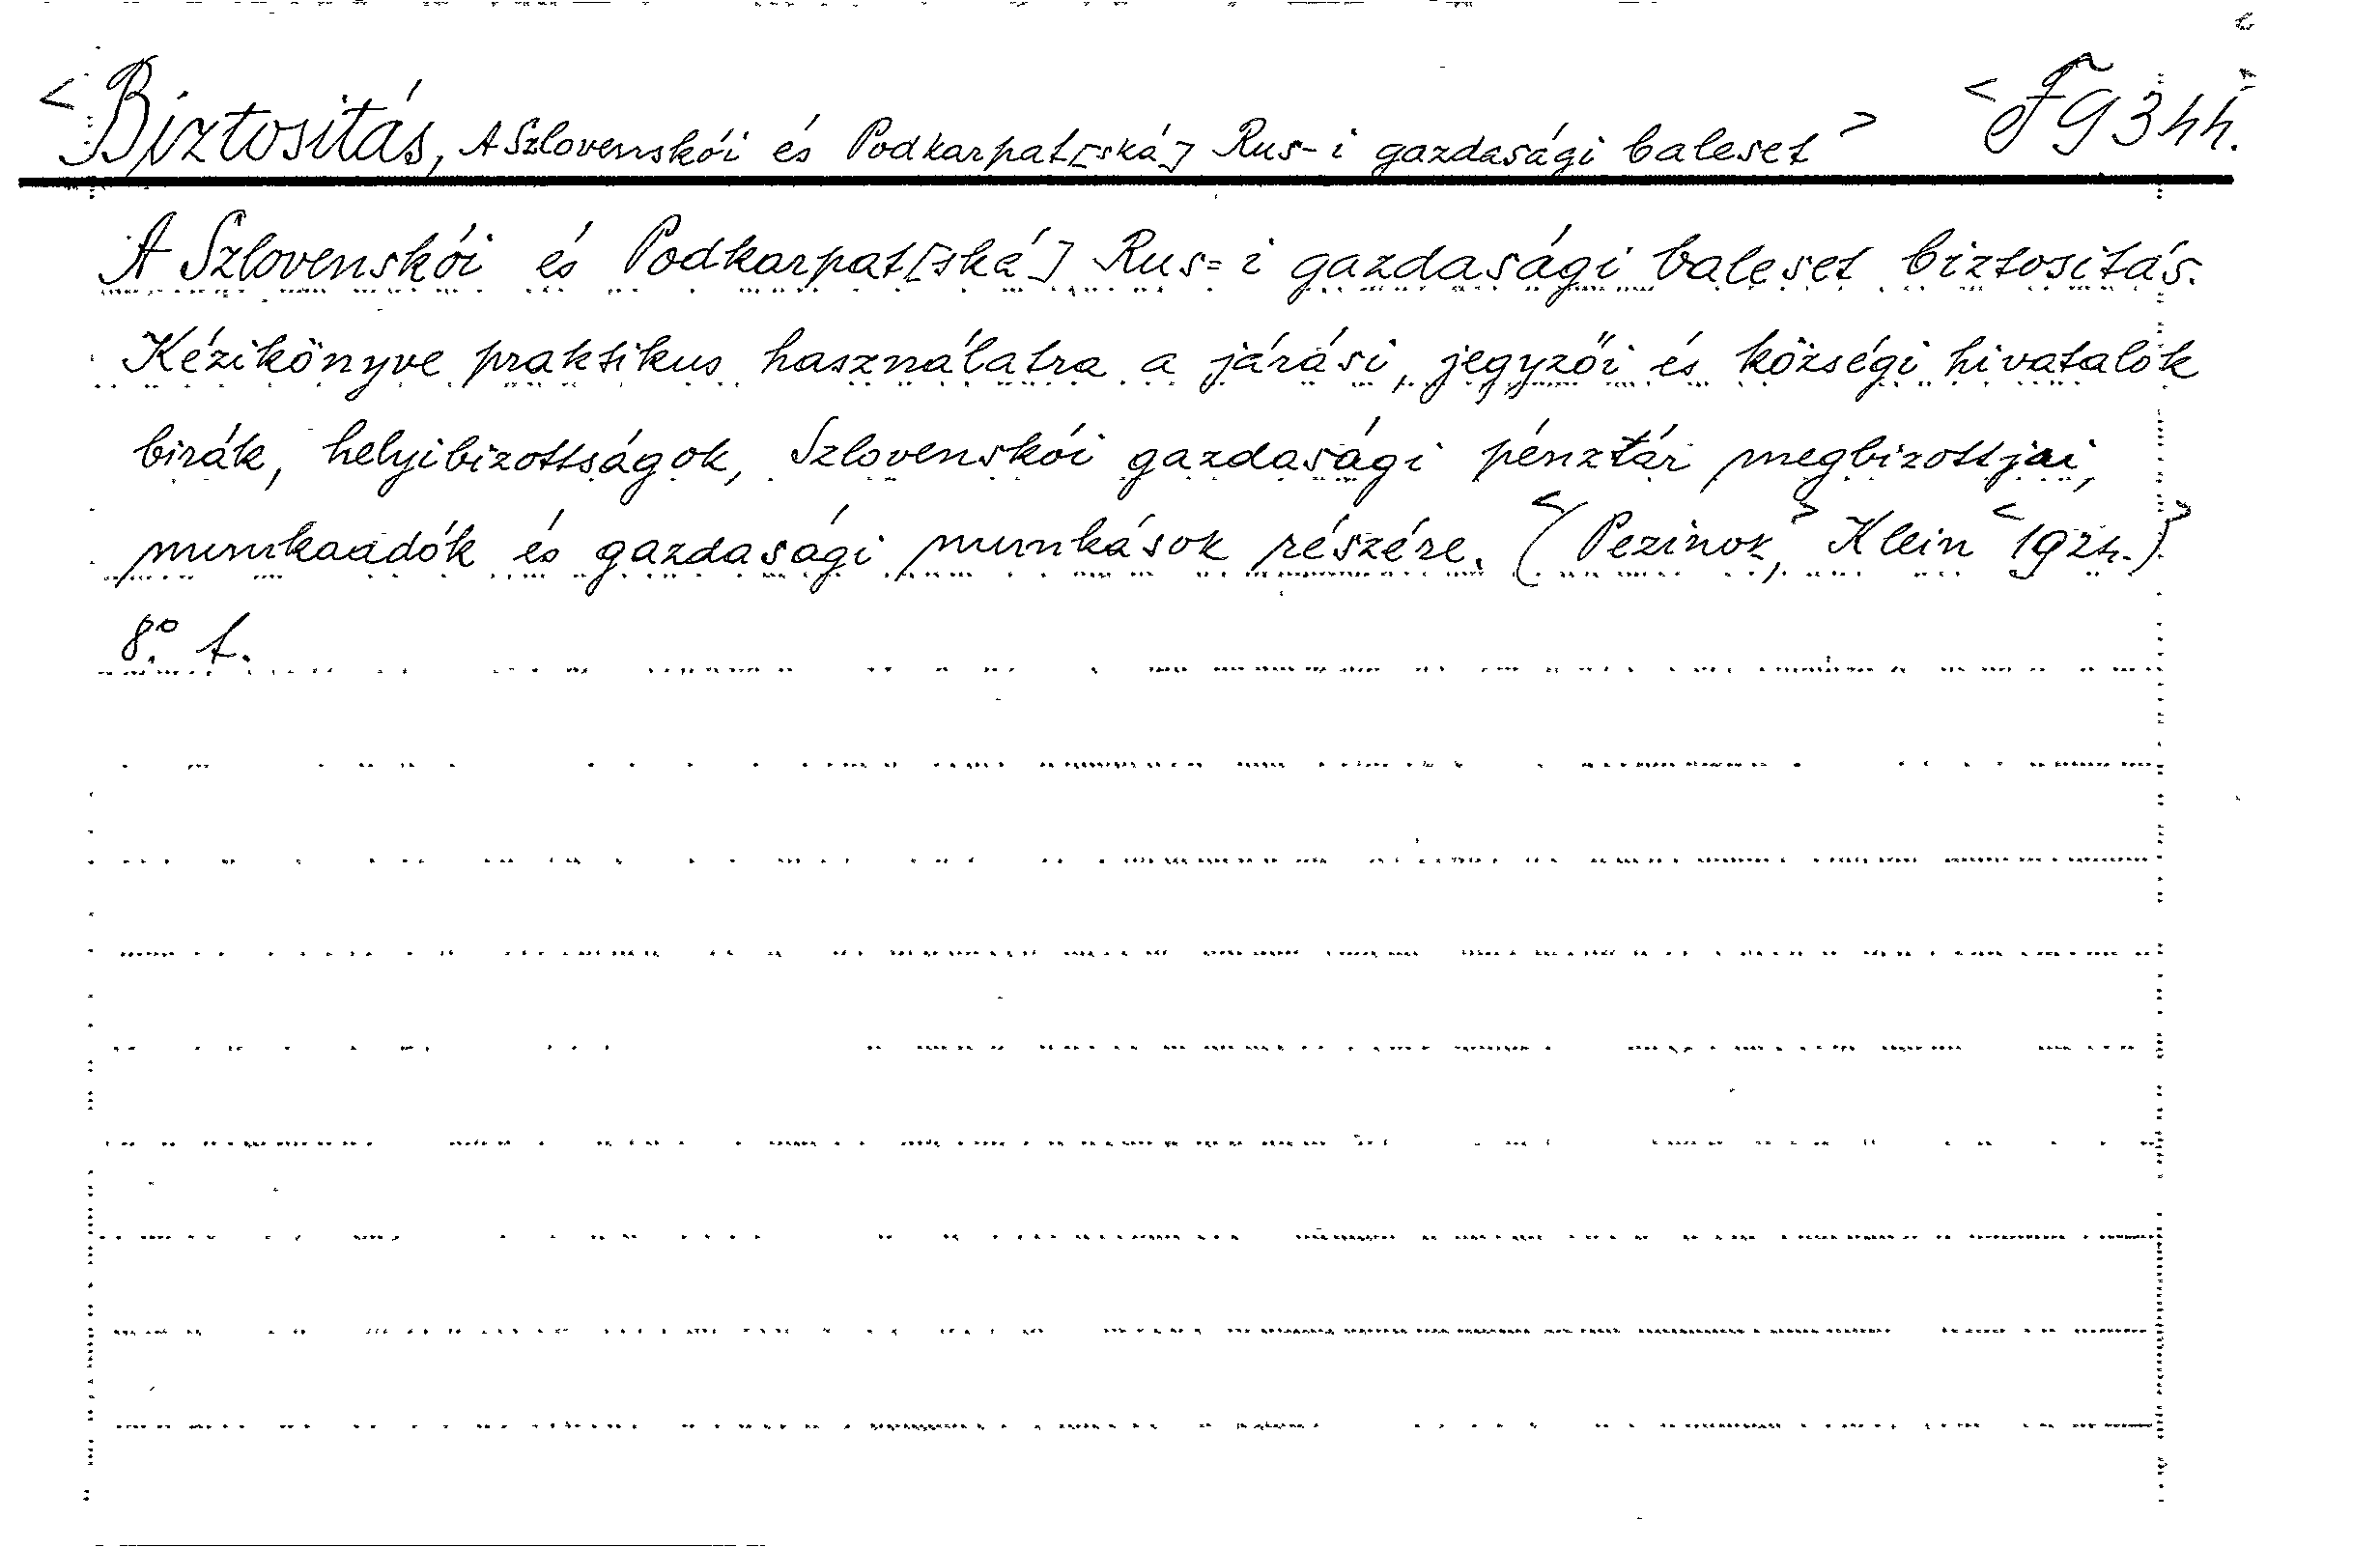 <Biztositás, A Szlovenskói és Podkarpat[ská] Rus-i gazdasági baleset> <F 9344.
A Szlovenskói és Podkarpat[ská] Rus=i gazdasági baleset biztositás.
Kézikönyve praktikus használatra a járási, jegyzői és községi hivatalok
birák, helyibizottságok, Szlovenskói gazdasági pénztár megbizottjai,
munkaadók és gazdasági munkások részére. <(Pezinok,> Klein <1924.)>
8.° t.